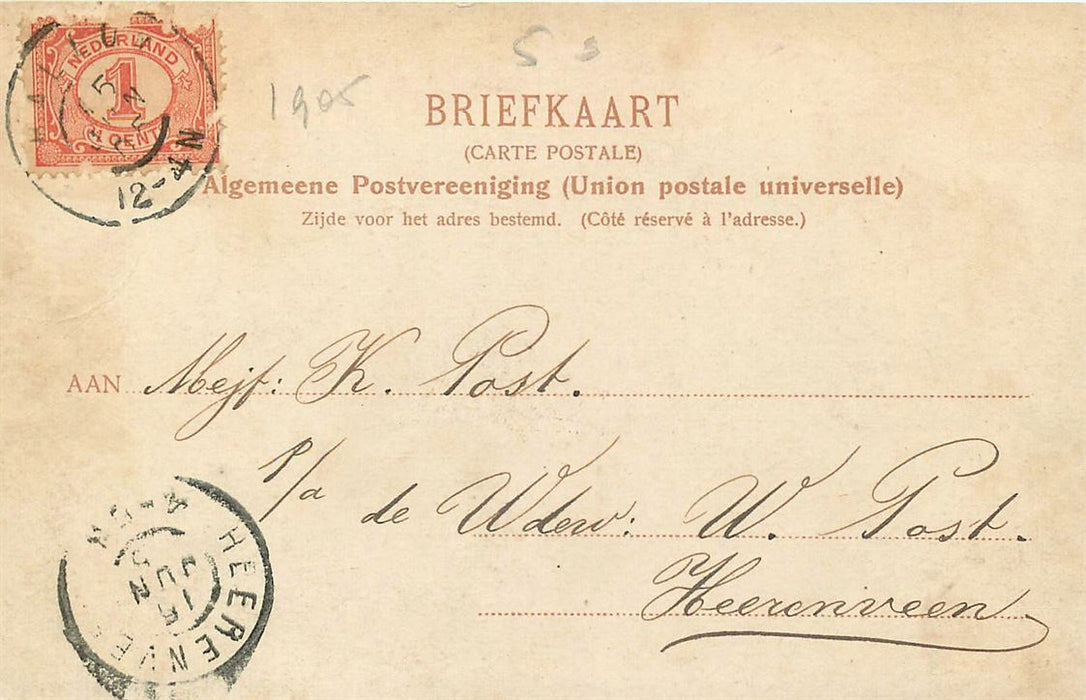 NEDERLAND
1
CENT
12-4N
1905
5 s
BRIEFKAART
(CARTE POSTALE)
Algemeene Postvereeniging (Union postale universelle)
Zijde voor het adres bestemd. (Côté réservé à l'adresse.)
AAN Mejf: K. Post.
p/a de Wdew: W. Post.
Heerenveen
HEERENVE